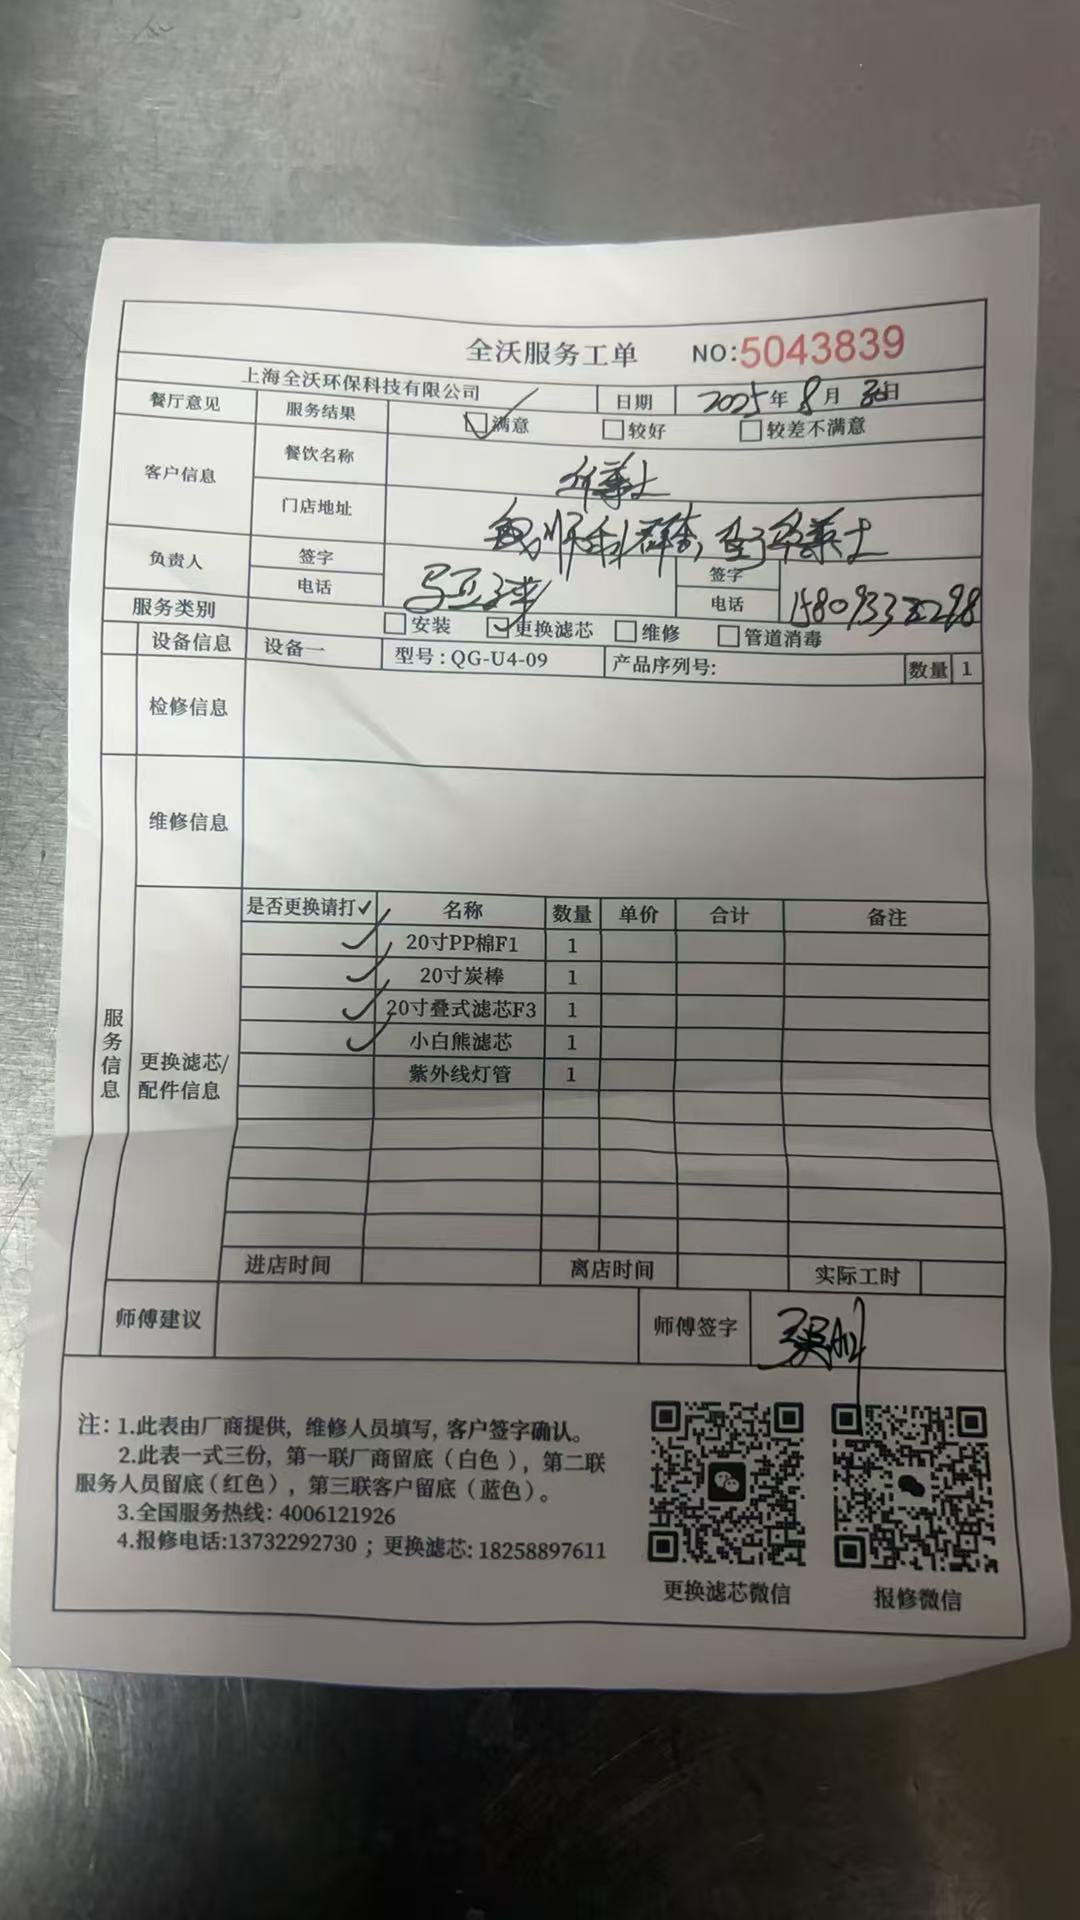 全沃服务工单 NO:5043839
上海全沃环保科技有限公司 日期 2025年8月30日
餐厅意见 服务结果 满意 较好 较差不满意
客户信息 餐饮名称 华莱士
门店地址 华莱士
负责人 签字 签字
电话 电话 15809333298
服务类别 安装 更换滤芯 维修 管道消毒
设备信息 设备一 型号:QG-U4-09 产品序列号: 数量 1
检修信息
维修信息
服务信息
更换滤芯/配件信息
是否更换请打✓ 名称 数量 单价 合计 备注
✓ 20寸PP棉F1 1
✓ 20寸炭棒 1
✓ 20寸叠式滤芯F3 1
✓ 小白熊滤芯 1
紫外线灯管 1
进店时间 离店时间 实际工时
师傅建议 师傅签字
注:1.此表由厂商提供,维修人员填写,客户签字确认。
2.此表一式三份,第一联厂商留底(白色),第二联
服务人员留底(红色),第三联客户留底(蓝色)。
3.全国服务热线:4006121926
4.报修电话:13732292730;更换滤芯:18258897611
更换滤芯微信 报修微信